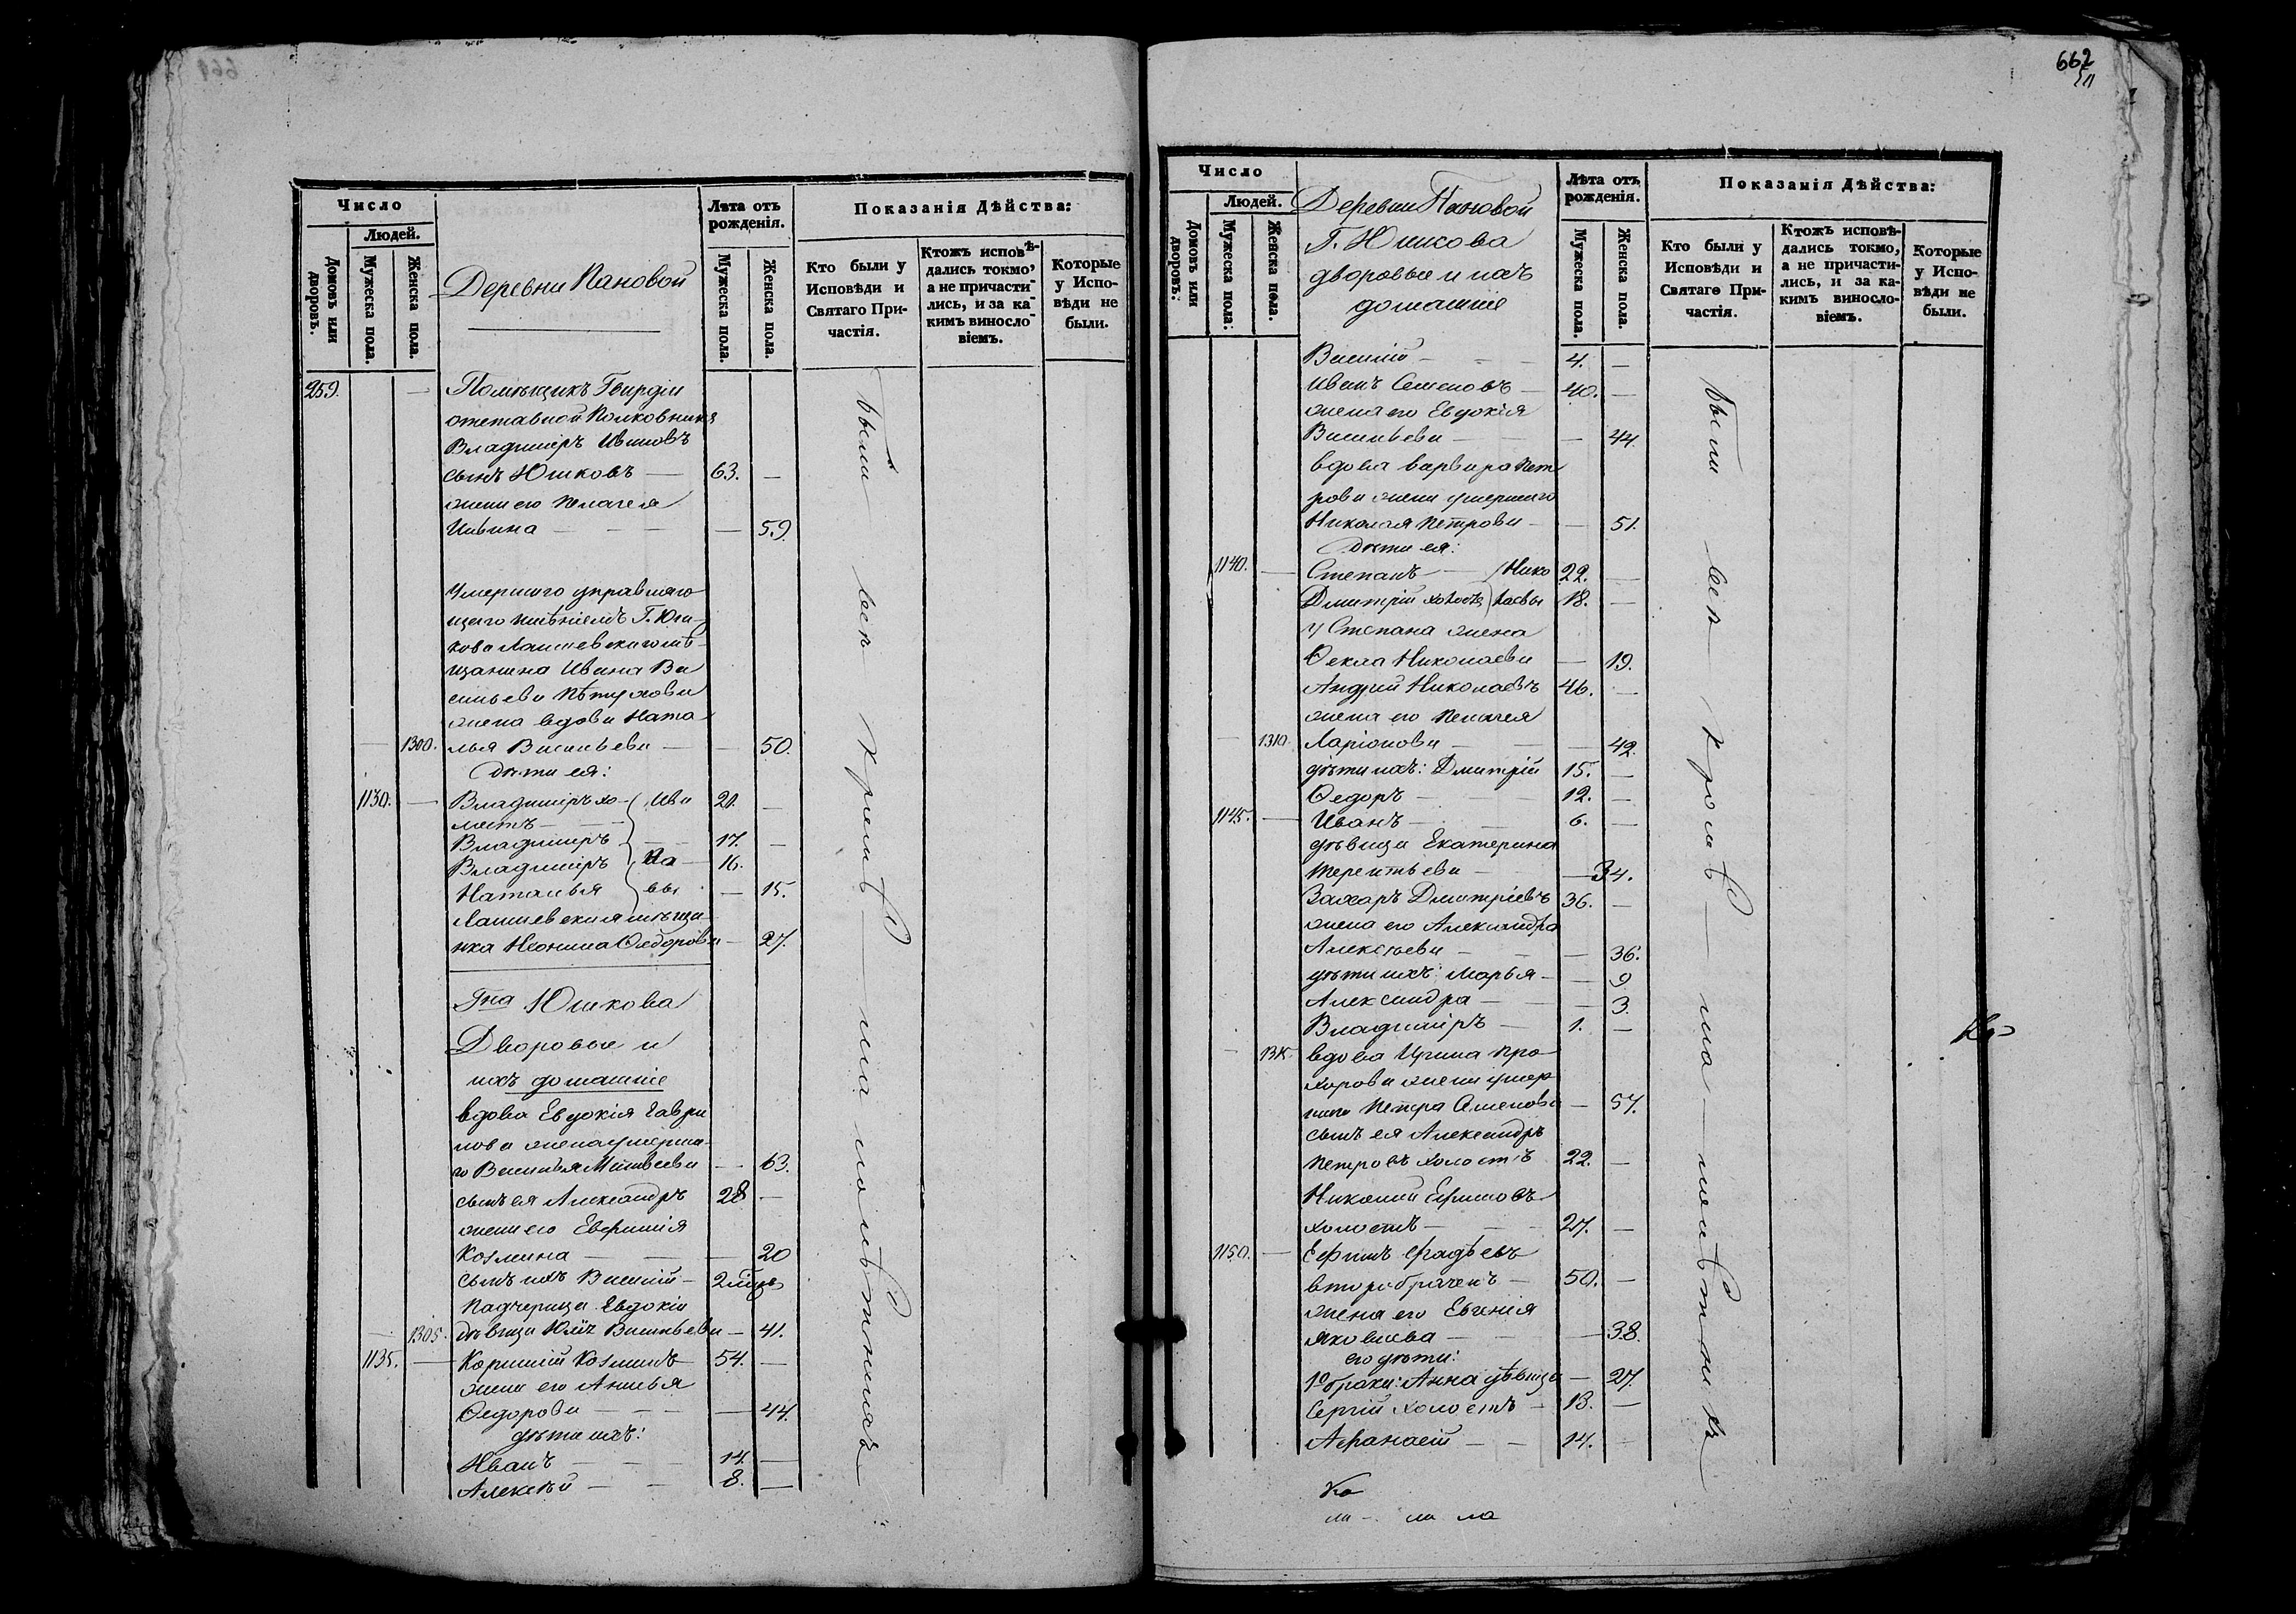 662
Число
Людей.
Домовъ или дворовъ.
Мужеска пола.
Женска пола.
Деревни Пановой
Лѣта отъ рожденія.
Мужеска пола.
Женска пола.
Показанія Дѣйства:
Кто были у Исповѣди и Святаго Причастія.
Ктожъ исповѣдались токмо, а не причастились, и за какимъ винословіемъ.
Которые у Исповѣди не были.
259. — Помѣщикъ Гвардіи
отставной Полковникъ
Владиміръ Ивановъ
сынъ Юшковъ — 63. —
жена его Пелагея
Ивановна — — 59.
Умершаго управляю
щаго имѣніемъ Г. Юш
кова Лаишевскаго мѣ
щанина Ивана Ва
сильева Пѣтухова
жена вдова Ната
— 1300. лья Васильева — — 50.
Дѣти ея:
1130. — Владиміръ хо- Ива 20. —
лостъ —
Владиміръ — 17. —
Владиміръ но — 16.
Наталья вы — 15.
Лаишевская мѣща
нка Неонила Ѳедорова — 27.
Гна Юшкова
Дворовые и
ихъ домашніе
вдова Евдокія Гаври
лова жена умерша
го Василья Матвеева — 63.
сынъ ея Александръ 28 —
жена его Евфимія
Козмина — — 20
сынъ ихъ Василій — 2
Падчерица Евдокія
— 1305. дѣвица Васильева — 41.
1135. — Козминъ 54. —
жена его Анисья
Ѳедорова — — 44.
дѣти ихъ:
Иванъ — 14. —
Алексѣй — 8. —
были всѣ кромѣ — ма — лолѣтнихъ
Число
Людей.
Домовъ или дворовъ:
Мужеска пола:
Женска пола.
Деревни Пановой
Г. Юшкова
дворовые и ихъ
домашніе
Лѣта отъ рожденія.
Мужеска пола.
Женска пола.
Показанія Дѣйства:
Кто были у Исповѣди и Святаго Причастія.
Ктожъ исповѣдались токмо, а не причастились, и за какимъ винословіемъ.
Которые у Исповѣди не были.
Василій — 4. —
Иванъ Семеновъ — 40. —
жена его Евдокія
Васильева — — 44.
вдова Варвара Пет
рова жена умершаго
Николая Петрова — — 51.
Дѣти ея:
1140. — Степанъ — Нико 22. —
Дмитрій холостъ лаевы 18. —
у Степана жена
Ѳекла Николаева — 19.
Андрей Николаевъ 46. —
жена его Пелагея
— 1310. Ларіонова — — 42.
дѣти ихъ: Дмитрій 15. —
Ѳедоръ — 12. —
1145. — Иванъ — 6. —
дѣвица Екатерина
Терентьева — — 34.
Захаръ Дмитріевъ 36. —
жена его Александра
Алексѣева — — 36.
дѣти ихъ: Марья — — 9
Александра — — 3.
Владиміръ — 1. —
— 1315. вдова Ирина Про
хорова жена умер
шаго Петра Семенова — 57.
сынъ ея Александръ
Петровъ холостъ 22. —
Николай Ефимовъ
холостъ — 27. —
1150. — Ефимъ Фадѣевъ
второбраченъ — 50. —
жена его Евгенія
Яковлева — — 38.
его дѣти:
1го брака: Анна дѣвица — 27.
Сергій холостъ — 18. —
Афанасій — 14. —
были всѣ кромѣ — ма — лолѣтнихъ